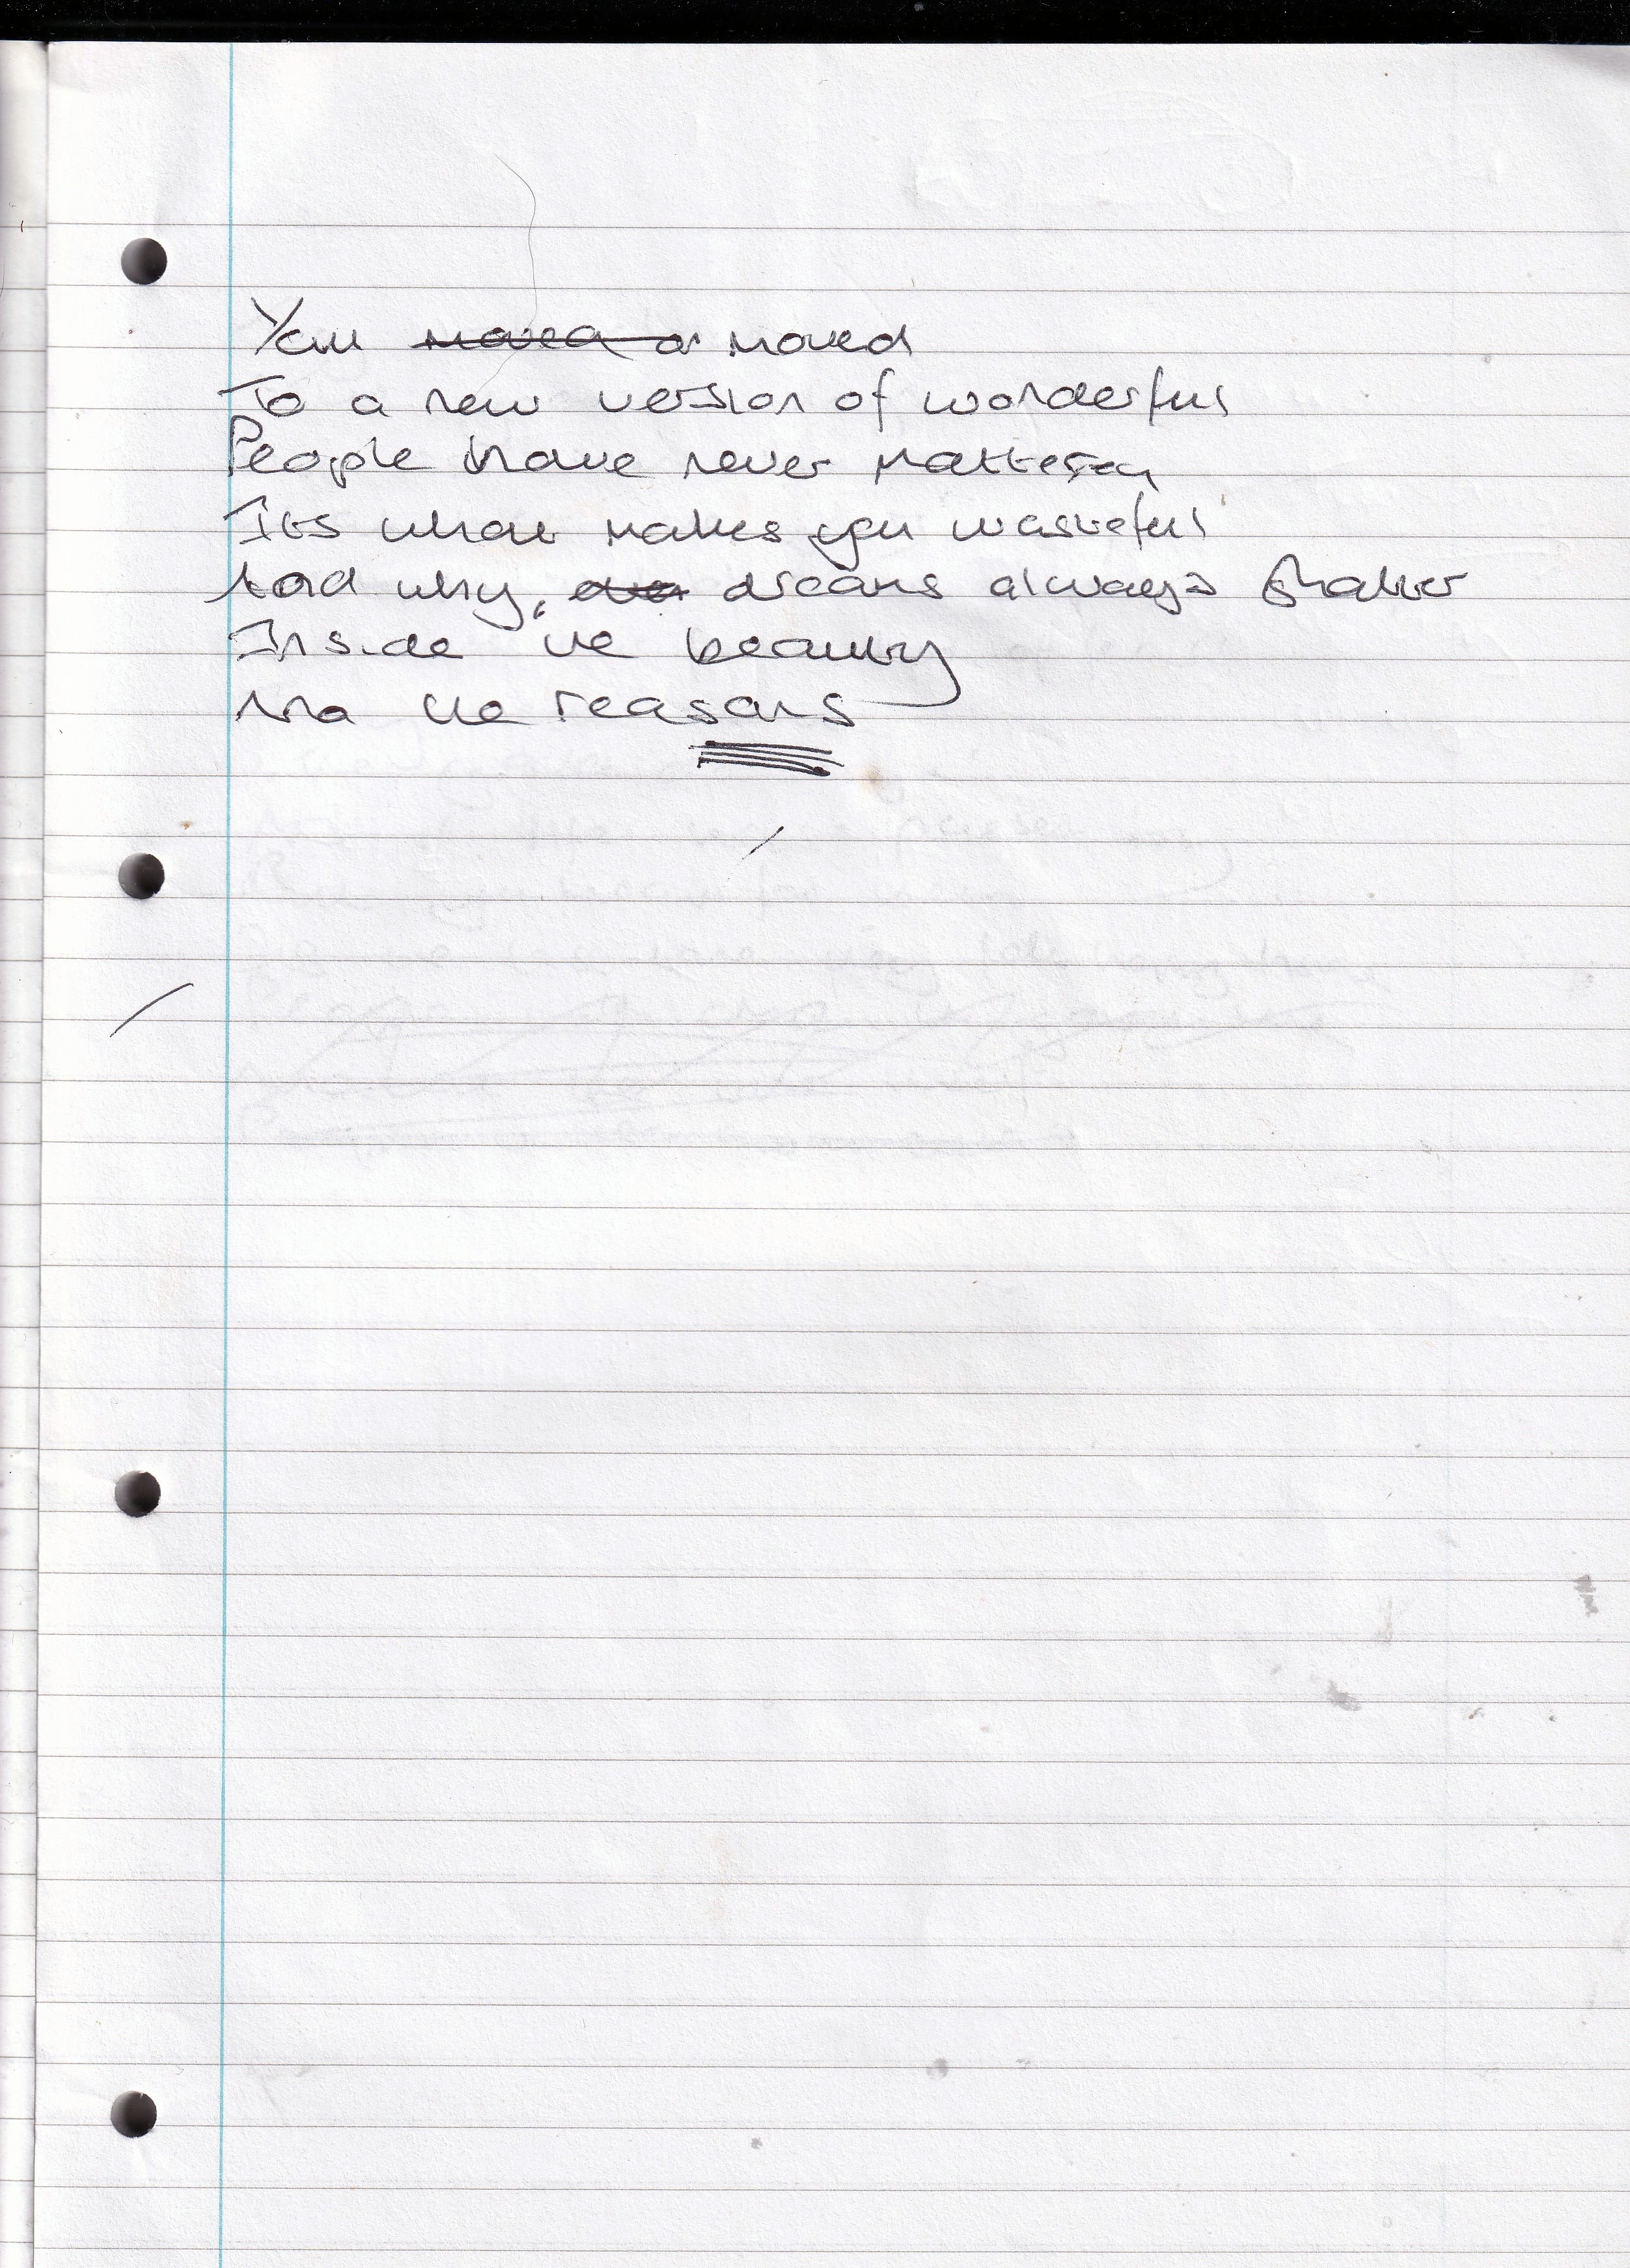 You ~~moved a~~ moved
To a new version of wonderful
People have never mattered
Its what makes you wasteful
And why, dreams always
Inside the beauty
the reasons